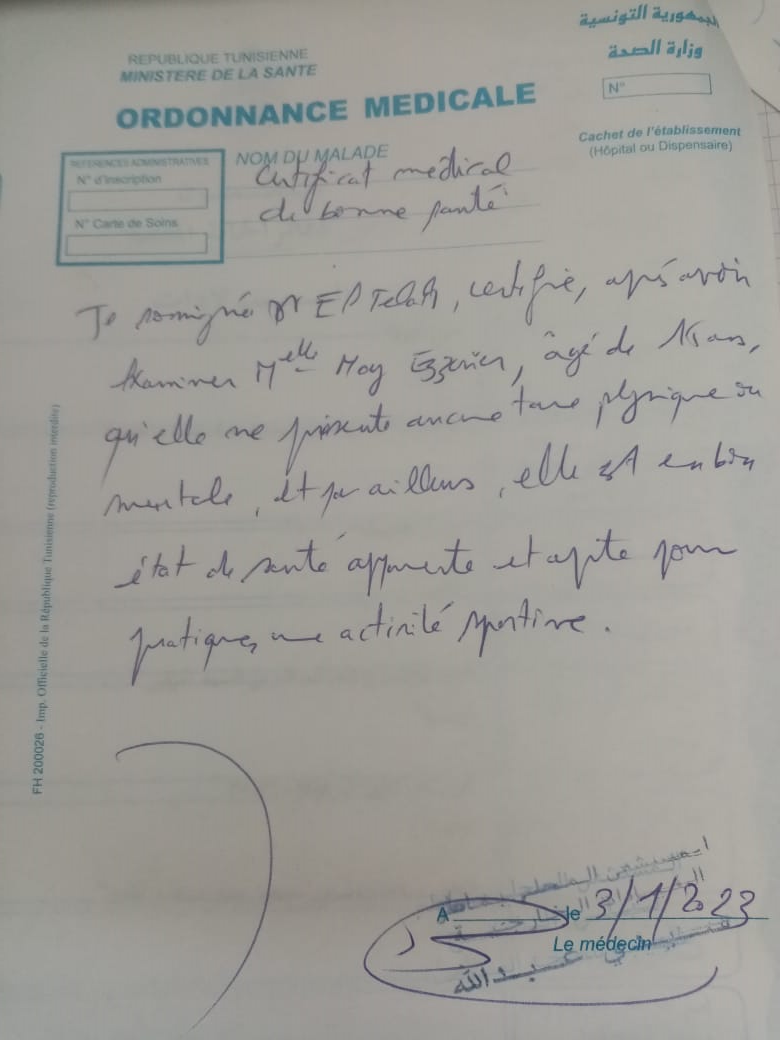 الجمهورية التونسية
وزارة الصحة
REPUBLIQUE TUNISIENNE
MINISTERE DE LA SANTE
ORDONNANCE MEDICALE
N°
Cachet de l'établissement
(Hôpital ou Dispensaire)
REFERENCES ADMINISTRATIVES
N° d'inscription
N° Carte de Soins
NOM DU MALADE
Certificat médical
de bonne santé
Je soussigné Dr, certifie, après avoir
examiner Melle May, âgé de ans,
qu'elle ne présente aucune tare physique ou
mentale, et par ailleurs, elle est en bon
état de santé apparente et apte pour
pratiquer une activité sportive.
FH 200026 - Imp. Officielle de la République Tunisienne (reproduction interdite)
A le 3/1/2023
Le médecin
عبد الله